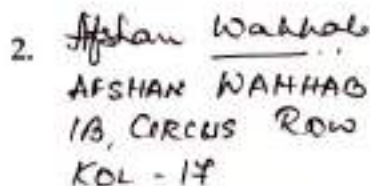 2. Afshan Wahhab
AFSHAN WAHHAB
1B, CIRCUS ROW
KOL - 17